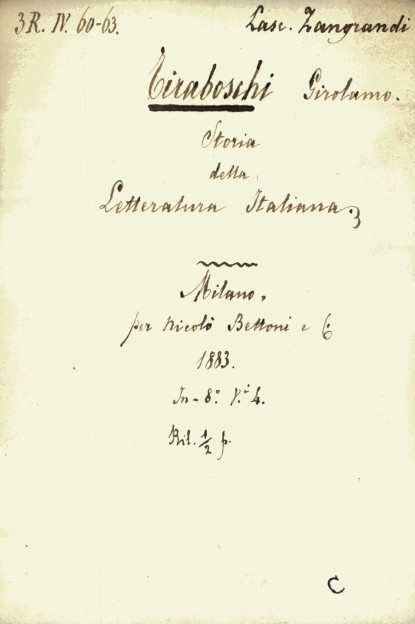 3R. IV. 60-63. Lasc. Zangrandi
Tiraboschi Girolamo.
Storia
della
Letteratura Italiana;
Milano,
per Nicolò Bettoni e C
1883.
In-8° V.i 4.
Ril. 1/2 p.
C